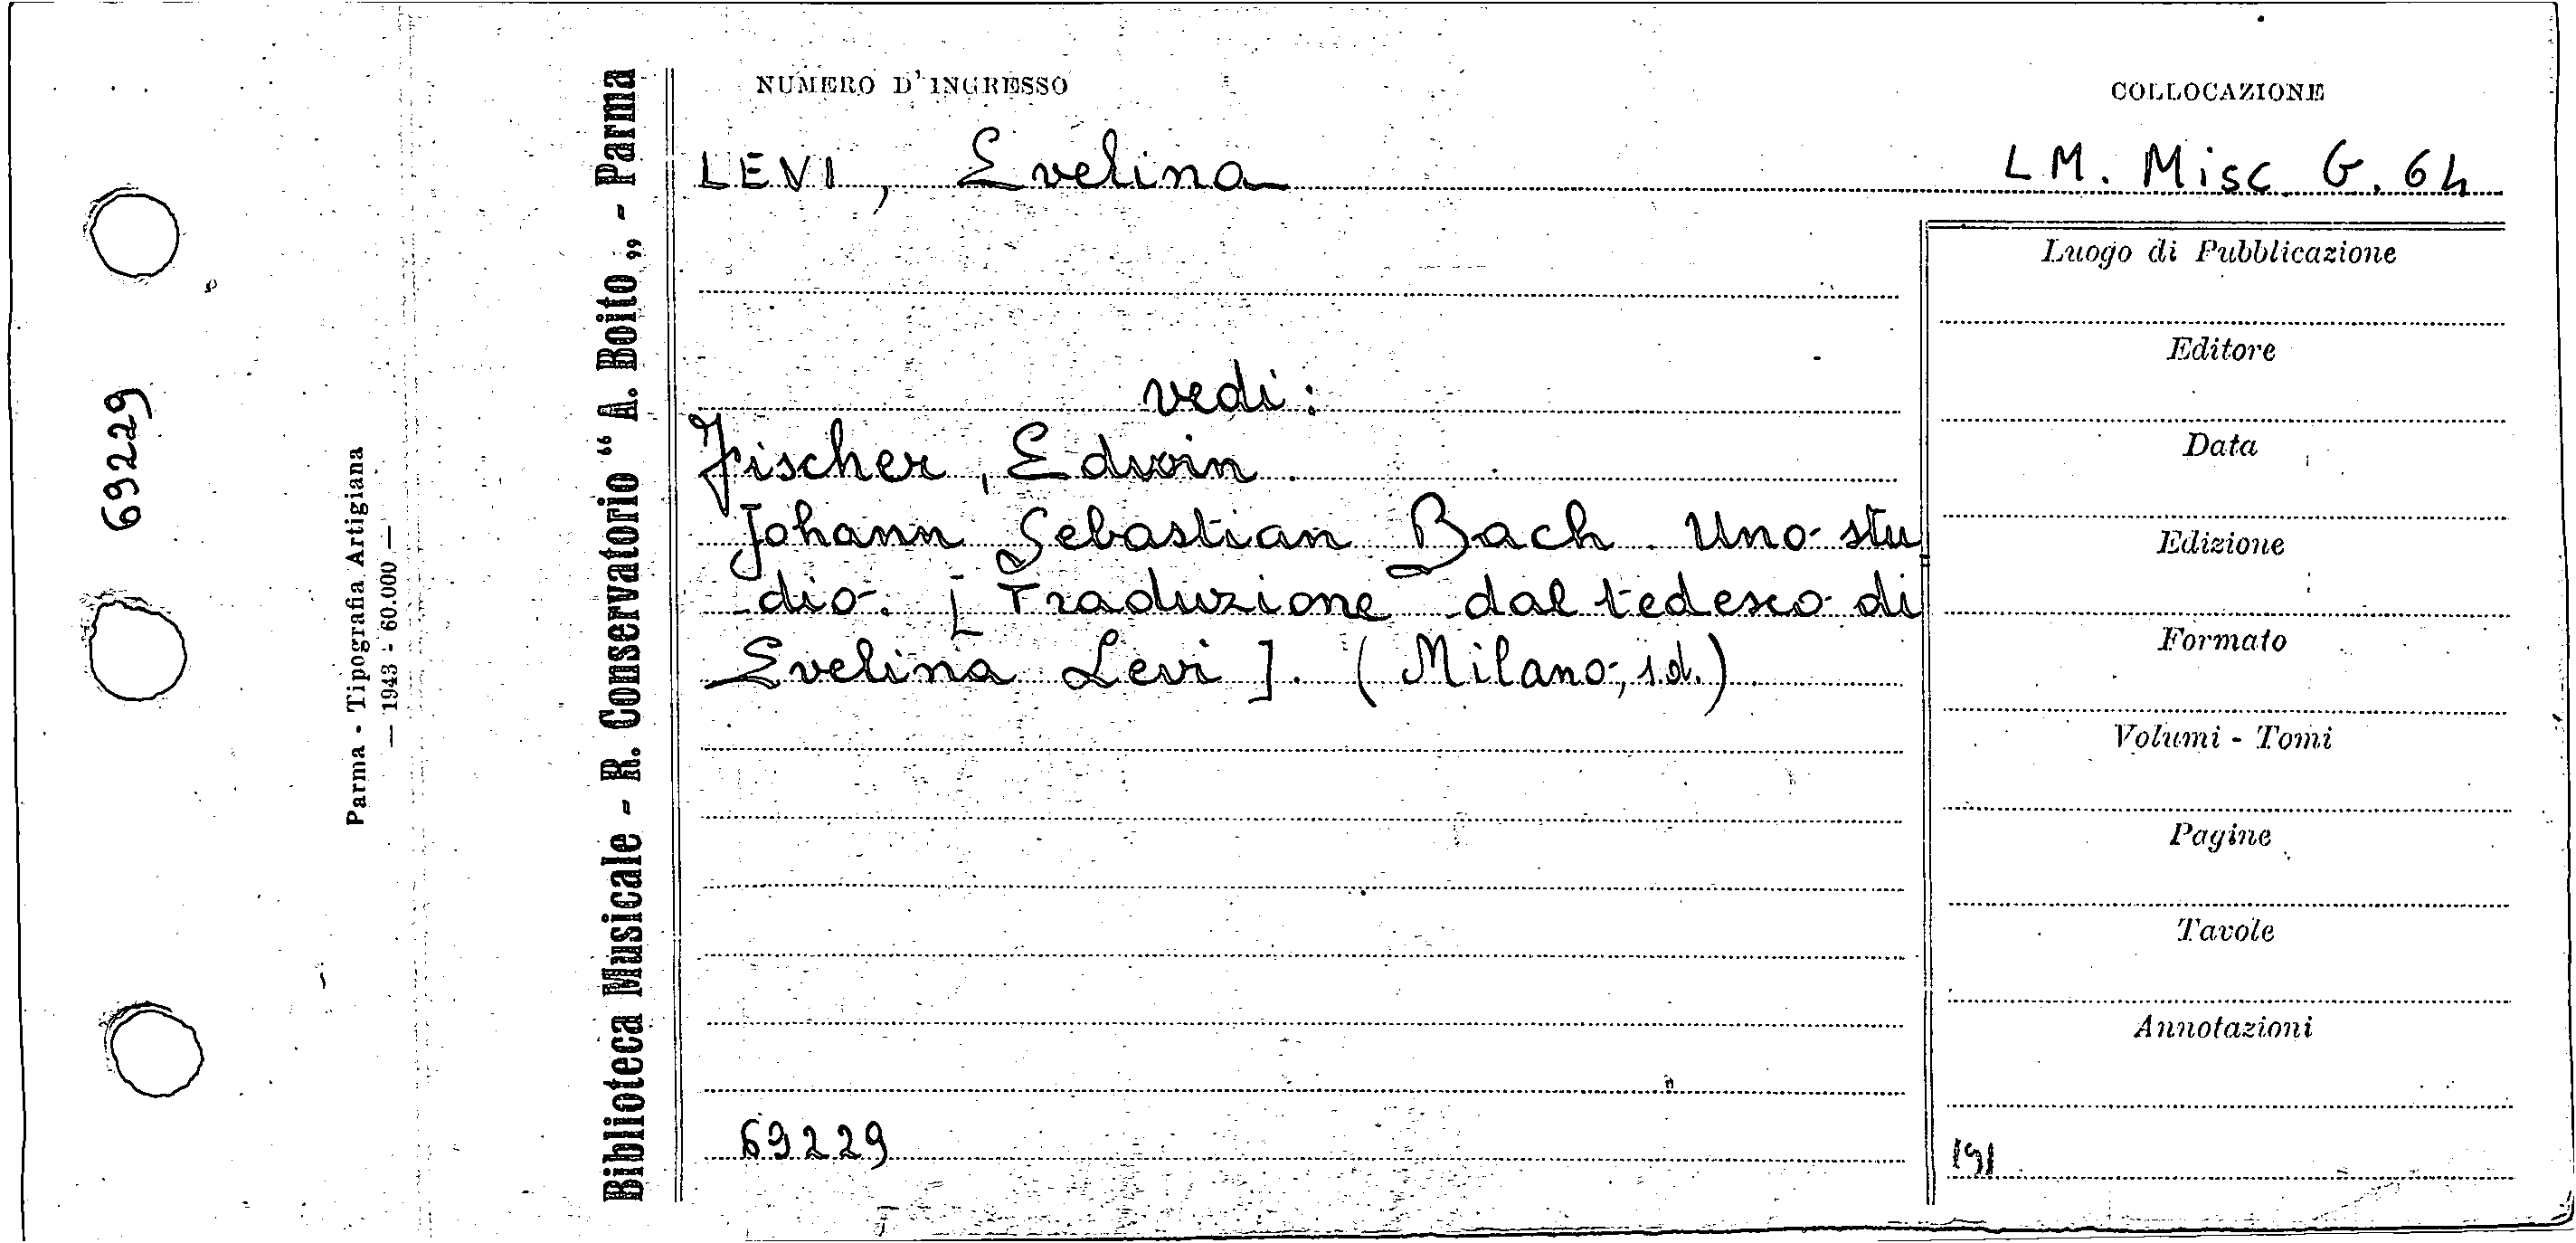 NUMERO D'INGRESSO
COLLOCAZIONE
LEVI, Evelina
LM. Misc. G. 64
vedi:
Fischer, Edwin.
Johann Sebastian Bach. Uno stu
dio. [Traduzione dal tedesco di
Evelina Levi]. (Milano, s.d.).
69229
Luogo di Pubblicazione
Editore
Data
Edizione
Formato
Volumi - Tomi
Pagine
Tavole
Annotazioni
Biblioteca Musicale - R. Conservatorio “ A. Boito „ - Parma
Parma - Tipografia Artigiana
— 1943 - 60.000 —
69229